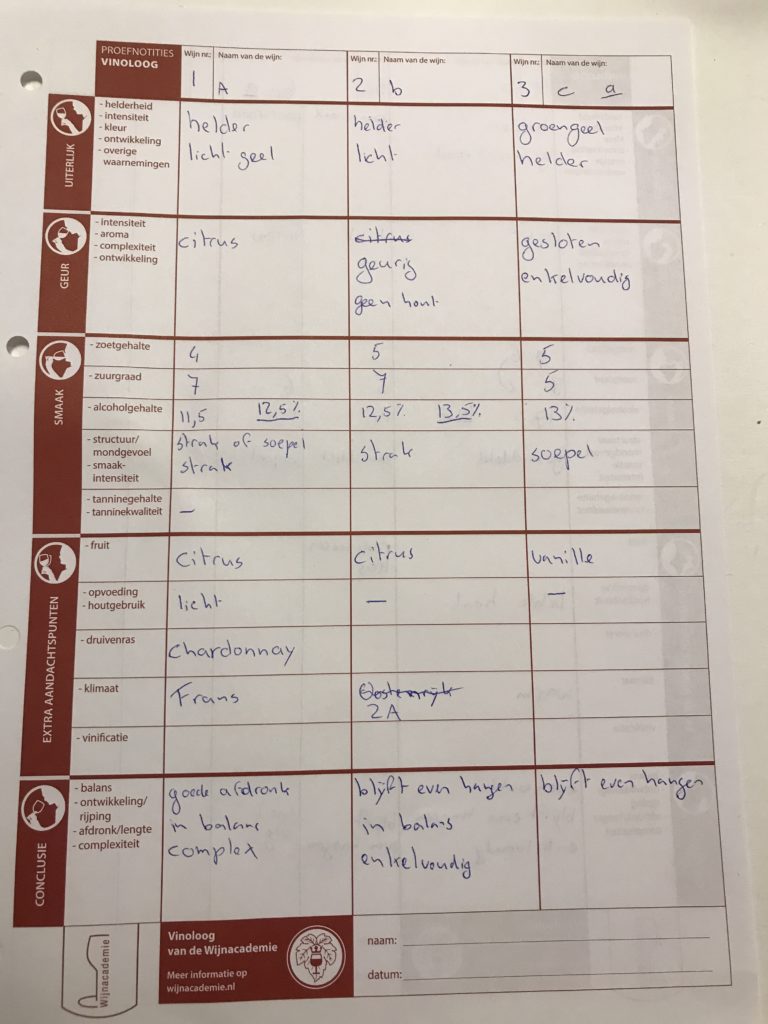 PROEFNOTITIES
VINOLOOG
Wijn nr.: Naam van de wijn:
1 A a
Wijn nr.: Naam van de wijn:
2 b
Wijn nr.: Naam van de wijn:
3 c a
UITERLIJK
- helderheid
- intensiteit
- kleur
- ontwikkeling
- overige
waarnemingen
helder
licht geel
helder
licht
groengeel
helder
GEUR
- intensiteit
- aroma
- complexiteit
- ontwikkeling
citrus
citrus
geurig
geen hout
gesloten
enkelvoudig
SMAAK
- zoetgehalte
4
5
5
- zuurgraad
7
7
5
- alcoholgehalte
11,5 12,5%
12,5% 13,5%
13%
- structuur/
mondgevoel
- smaak-
intensiteit
strak of soepel
strak
strak
soepel
- tanninegehalte
- tanninekwaliteit
—
EXTRA AANDACHTSPUNTEN
- fruit
citrus
citrus
vanille
- opvoeding
- houtgebruik
licht
—
—
- druivenras
chardonnay
- klimaat
Frans
Oostenrijk
2A
- vinificatie
CONCLUSIE
- balans
- ontwikkeling/
rijping
- afdronk/lengte
- complexiteit
goede afdronk
in balans
complex
blijft even hangen
in balans
enkelvoudig
blijft even hangen
Wijnacademie
Vinoloog
van de Wijnacademie
Meer informatie op
wijnacademie.nl
naam:
datum: